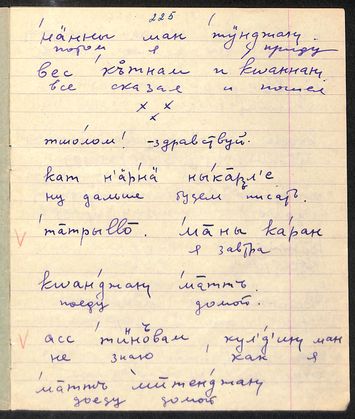 225
ма̄нны ман тӱнджаӊ.
потом я приду
вес къ̊тнам и кшаннаӊ.
все сказал и пошел
× × ×
тшо́лом! -здравствуй.
кат н'а̄рнӓ ныка̄рл'е
ну дальше будем писать.
та̄трыlle̅. ма̄ны ка́ран
я завтра
кшан'джаӊ ма̄ттъ
поеду домой.
асс тӣновам, кул'д'иӊ ман
не знаю как я
ма̄ттъ мӣтенджаӊ
доеду домой